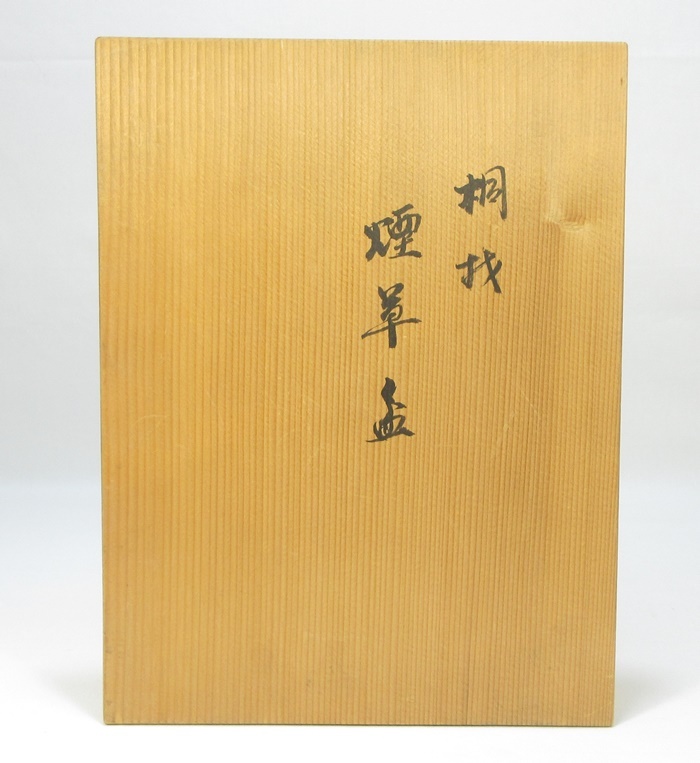 桐材
煙草盆